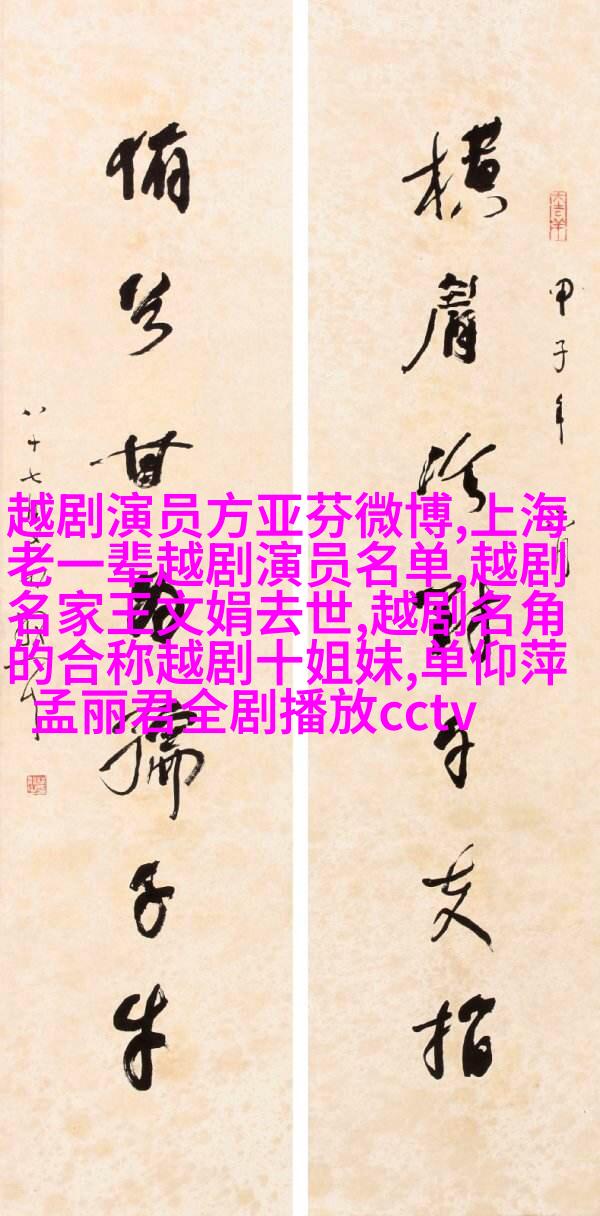 甲子年
横眉冷對千夫指
俯首甘為孺子牛
八十七
越剧演员方亚芬微博,上海
老一辈越剧演员名单,越剧
名家王文娟去世,越剧名角
的合称越剧十姐妹,单仰萍
孟丽君全剧播放cctv